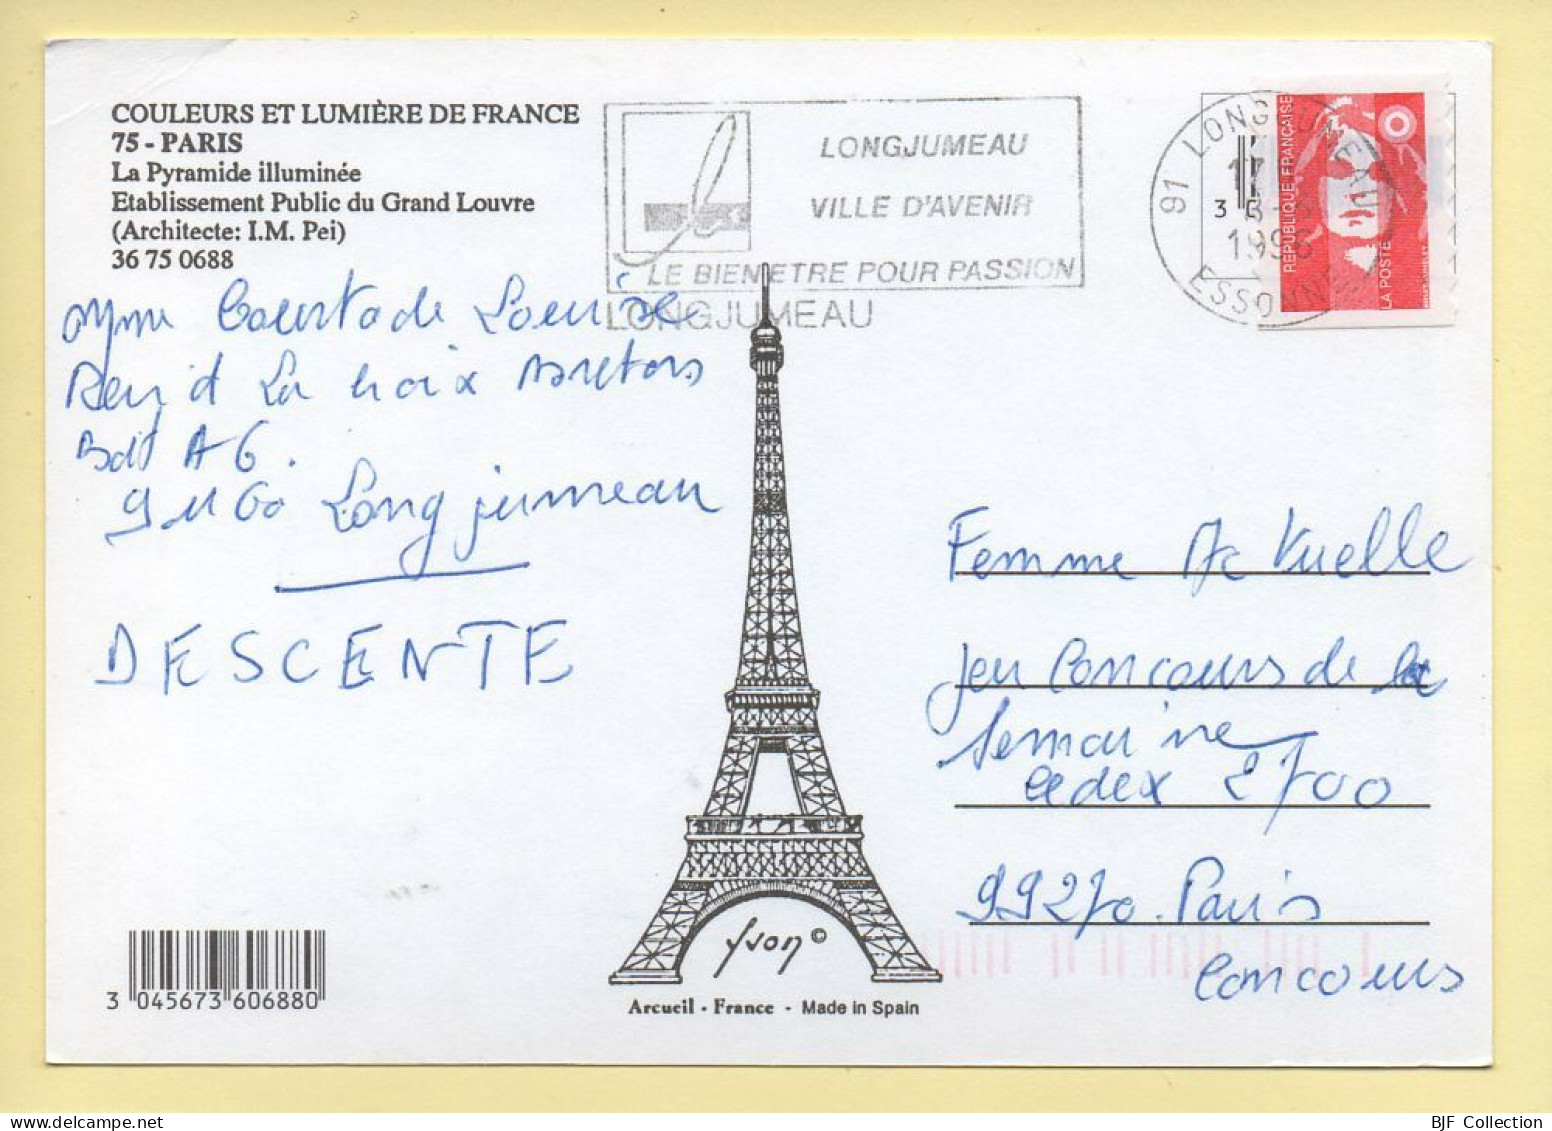 COULEURS ET LUMIÈRE DE FRANCE
75 - PARIS
La Pyramide illuminée
Etablissement Public du Grand Louvre
(Architecte: I.M. Pei)
36 75 0688
LONGJUMEAU
VILLE D'AVENIR
LE BIEN ETRE POUR PASSION
LONGJUMEAU
91 LONGJUMEAU
ESSONNE
RÉPUBLIQUE FRANÇAISE
LA POSTE
Mme Courtade Louise
La croix Bretons
Bat A6.
91160 Longjumeau
DESCENTE
Femme Actuelle
jeu Concours de la
Semaine
Cedex 2700
99270. Paris
Concours
yvon ©
Arcueil - France - Made in Spain
3 045673 606880
BJF Collection